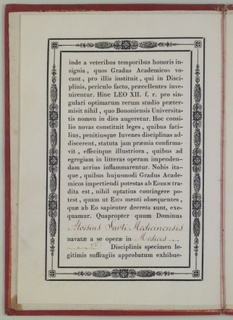 inde a veteribus temporibus honoris in-
signia, quos Gradus Academicos vo-
cant, pro illis instituit, qui in Disci-
plinis, periculo facto, præcellentes inve-
nirentur. Hinc LEO XII. f. r. pro sin-
gulari optimarum rerum studio præter-
misit nihil, quo Bononiensis Universita-
tis nomen in dies augeretur. Hoc consi-
lio novas constituit leges, quibus faci-
lius, penitiusque Iuvenes disciplinas ad-
discerent, statuta jam præmia confirma-
vit, effecitque illustriora, quibus ad
egregiam in litteris operam impenden-
dam acrius inflammarentur. Nobis ita-
que, quibus hujusmodi Gradus Acade-
micos impertiendi potestas ab EODEM tra-
dita est, nihil optatius contingere po-
test, quam ut EIUS menti obsequentes,
quæ ab Eo sapienter decreta sunt, exe-
quamur. Quapropter quum Dominus
Aloisius Sarti Medicinensis
navatæ a se operæ in Medicis
Disciplinis specimen le-
gitimis suffragiis approbatum exhibue-